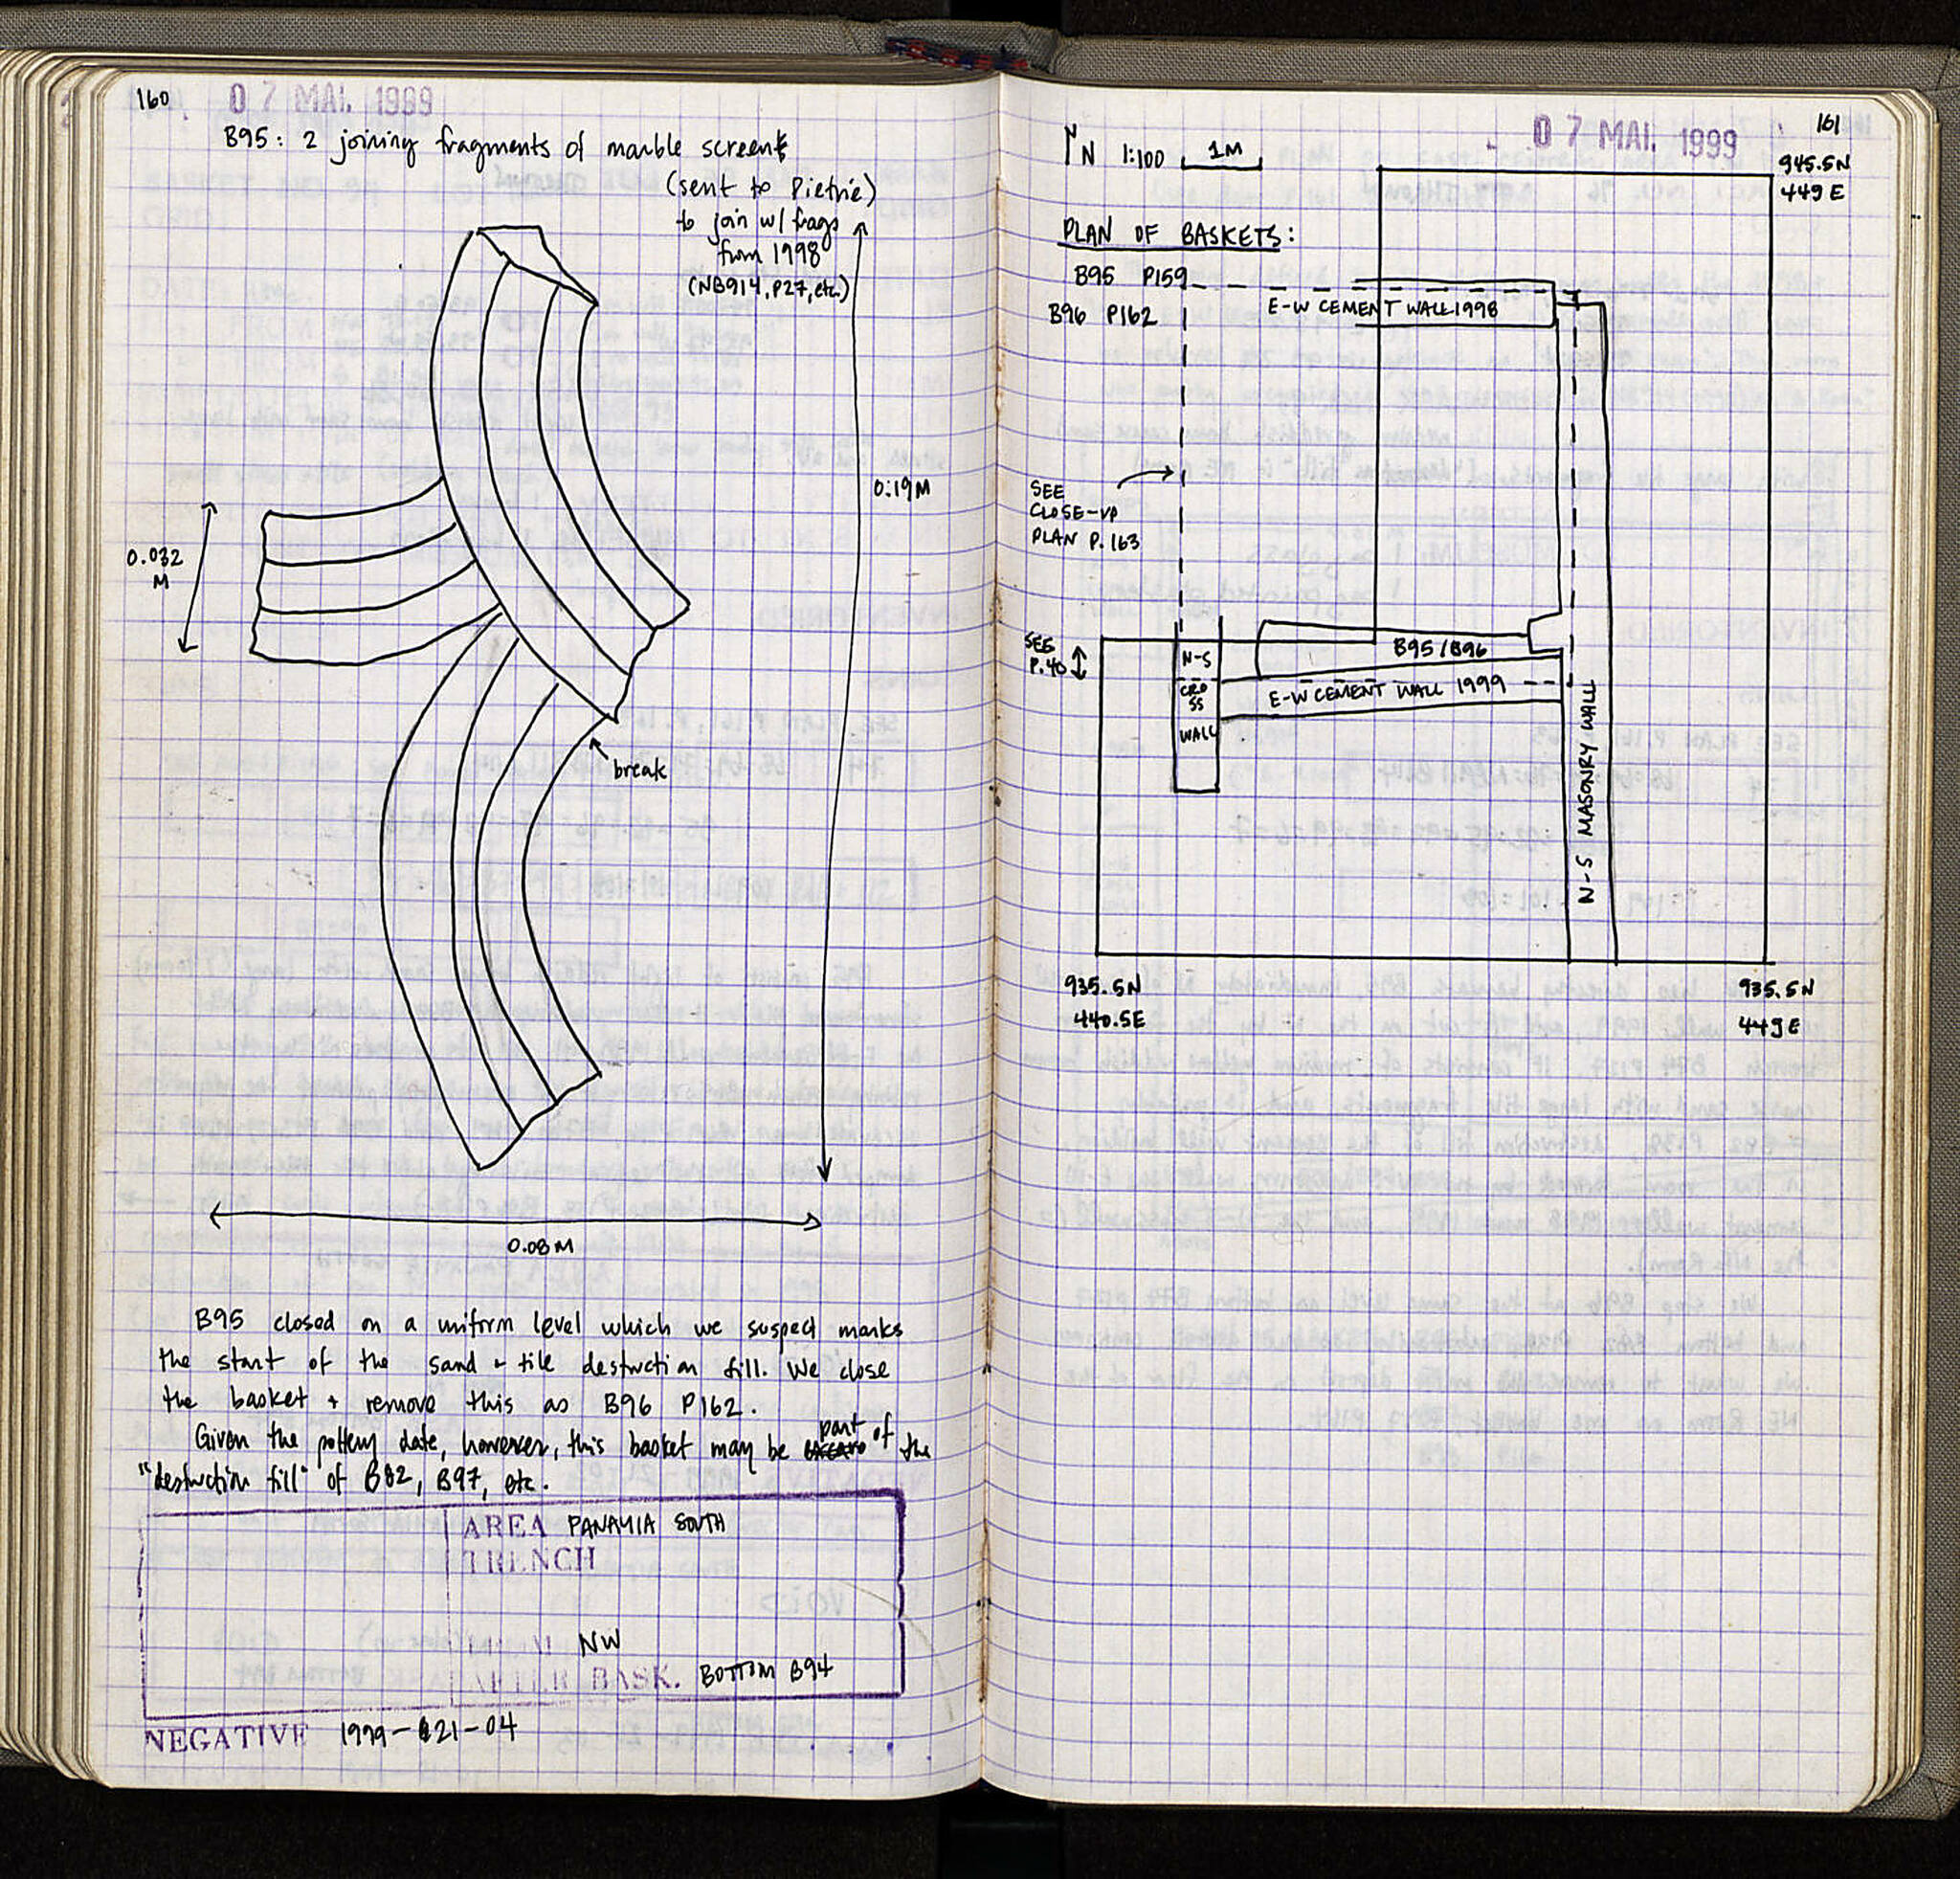 160
07 MAI. 1999
B95: 2 joining fragments of marble screen
(sent to Pietrie)
to join w/ frags
from 1998
(NB914, P27, etc.)
0.19M
0.032
M
break
0.08M
B95 closed on a uniform level which we suspect marks
the start of the sand + tile destruction fill. We close
the basket + remove this as B96 P162.
Given the pottery date, however, this basket may be part of the
"destruction fill" of B82, B97, etc.
AREA PANAYIA SOUTH
TRENCH
NW
AFTER BASK. BOTTOM B94
NEGATIVE 1999-21-04
161
07 MAI. 1999
N 1:100 1M
945.5N
449E
PLAN OF BASKETS:
B95 P159
B96 P162
E-W CEMENT WALL 1998
SEE
CLOSE-UP
PLAN P.163
SEE
P.40
N-S
CRO
SS
WALL
B95/B96
E-W CEMENT WALL 1999
N-S MASONRY WALL
935.5N
440.5E
935.5N
449E